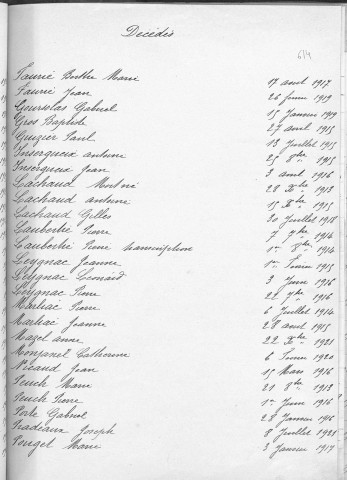 Décédés
614
Faurie Berthe Marie 17 aout 1917
Faurie Jean 26 fevrier 1919
Goursolas Gabriel 15 Janvier 1919
Gros Baptiste 27 aout 1915
Guizier Paul 13 Juillet 1915
Insergueux antoine 25 8bre 1915
Insergueux Jean 3 aout 1916
Lachaud 28 Xbre 1913
Lachaud antoine 15 Xbre 1915
Lachaud Gilles 30 Juillet 1918
Laubertie Pierre 7 7bre 1914
Laubertie Pierre transcription 1er 8bre 1914
Leygnac Jeanne 1er fevrier 1915
Leygnac Leonard 3 Juin 1916
Leygnac Pierre 22 7bre 1916
Marliac Pierre 6 Juillet 1914
Marliac Jeanne 28 aout 1915
Mazel anne 22 Xbre 1921
Monjanel Catherine 6 fevrier 1920
Picaud Jean 15 Mars 1916
Peuch Marie 21 8bre 1913
Peuch Pierre 1er Juin 1916
Porte Gabriel 28 Janvier 1916
Pradeaux Joseph 8 Juillet 1921
Pouget Marie 3 Janvier 1917